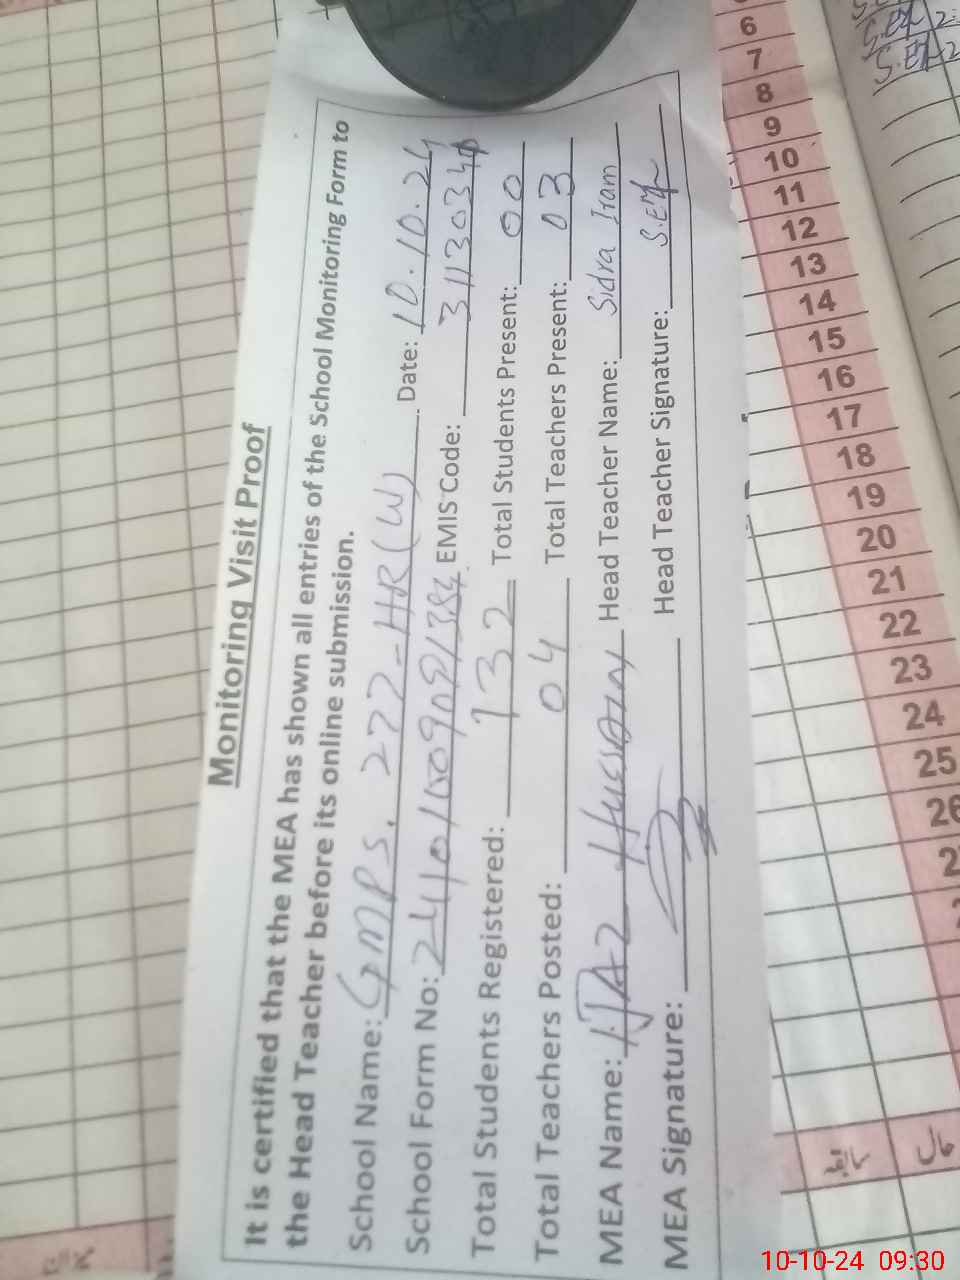 Monitoring Visit Proof
It is certified that the MEA has shown all entries of the School Monitoring Form to
the Head Teacher before its online submission.
School Name: GMPS. 277-HR(W). Date: 10.10.24
School Form No: EMIS Code:
Total Students Registered: 132 Total Students Present: 00
Total Teachers Posted: 04 Total Teachers Present: 03
MEA Name: IJAZ HUSSAIN Head Teacher Name: Sidra Iram
MEA Signature: Head Teacher Signature: S.E
6
7
8
9
10
11
12
13
14
15
16
17
18
19
20
21
22
23
24
25
26
10-10-24 09:30